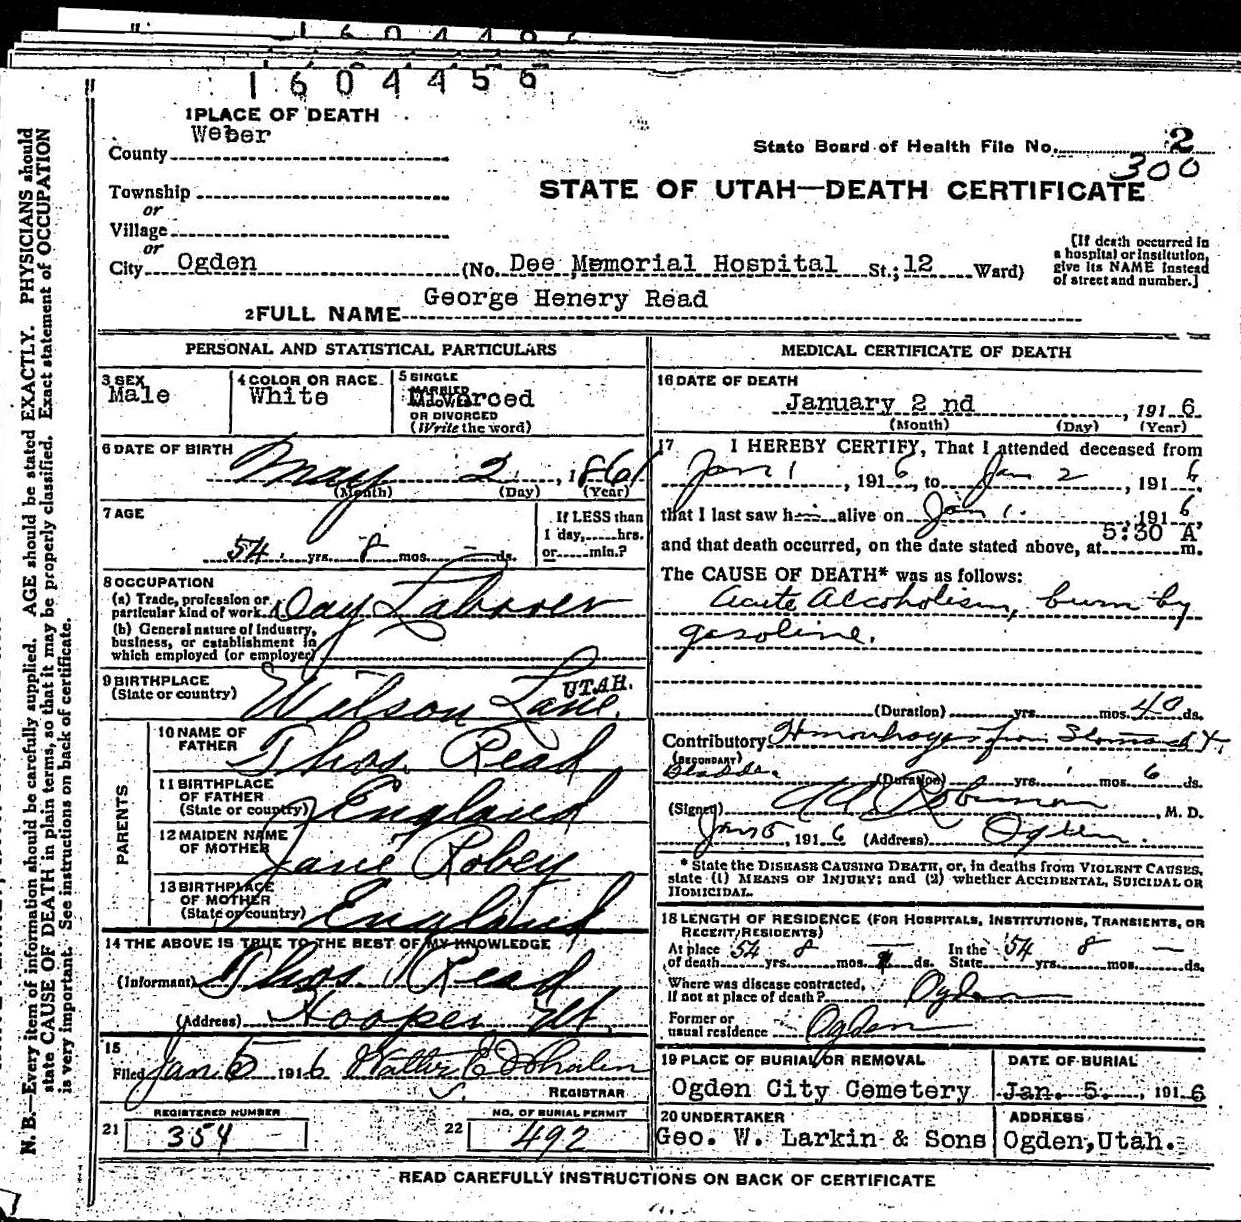 1604456
1 PLACE OF DEATH
Weber
County
State Board of Health File No. 2
300
Township
or
STATE OF UTAH—DEATH CERTIFICATE
Village
or
City Ogden (No. Dee Memorial Hospital St.; 12 Ward)
[If death occurred in
a hospital or institution,
give its NAME instead
of street and number.]
George Henery Read
2 FULL NAME
PERSONAL AND STATISTICAL PARTICULARS
3 SEX
Male
4 COLOR OR RACE
White
5 SINGLE
MARRIED
WIDOWED
Divorced
OR DIVORCED
(Write the word)
6 DATE OF BIRTH
May 2, 1861
(Month) (Day) (Year)
7 AGE
54 yrs. 8 mos. — ds.
If LESS than
1 day,.....hrs.
or.....min.?
8 OCCUPATION
(a) Trade, profession or
particular kind of work Day Laborer
(b) General nature of Industry,
business, or establishment in
which employed (or employer)
9 BIRTHPLACE
(State or country) Wilson Lane, UTAH.
PARENTS
10 NAME OF
FATHER Thos. Read
11 BIRTHPLACE
OF FATHER
(State or country) England
12 MAIDEN NAME
OF MOTHER Jane Robey
13 BIRTHPLACE
OF MOTHER
(State or country) England
14 THE ABOVE IS TRUE TO THE BEST OF MY KNOWLEDGE
(Informant) Thos. Read
(Address) Hooper, Ut.
15
Filed Jan 5 1916 Walter E
REGISTRAR
REGISTERED NUMBER
21 354
NO. OF BURIAL PERMIT
22 492
MEDICAL CERTIFICATE OF DEATH
16 DATE OF DEATH
January 2 nd, 1916
(Month) (Day) (Year)
17 I HEREBY CERTIFY, That I attended deceased from
Jan 1, 1916, to Jan 2, 1916,
that I last saw h alive on Jan 1. 1916,
5:30 A
and that death occurred, on the date stated above, at m.
The CAUSE OF DEATH* was as follows:
Acute Alcoholism, burn by
gasoline.
(Duration) yrs. mos. 40 ds.
Contributory Hemorrhages from Stomach &
(SECONDARY)
Bladder. (Duration) yrs. mos. 6 ds.
(Signed) Robinson, M. D.
Jan 5, 1916 (Address) Ogden.
* State the DISEASE CAUSING DEATH, or, in deaths from VIOLENT CAUSES,
state (1) MEANS OF INJURY; and (2) whether ACCIDENTAL, SUICIDAL OR
HOMICIDAL.
18 LENGTH OF RESIDENCE (FOR HOSPITALS, INSTITUTIONS, TRANSIENTS, OR
RECENT RESIDENTS)
At place
of death 54 yrs. 8 mos. — ds. In the
State 54 yrs. 8 mos. — ds.
Where was disease contracted,
if not at place of death? Ogden
Former or
usual residence Ogden
19 PLACE OF BURIAL OR REMOVAL
Ogden City Cemetery
DATE OF BURIAL
Jan. 5., 1916
20 UNDERTAKER
Geo. W. Larkin & Sons
ADDRESS
Ogden, Utah.
READ CAREFULLY INSTRUCTIONS ON BACK OF CERTIFICATE
N. B.—Every item of information should be carefully supplied. AGE should be stated EXACTLY. PHYSICIANS should
state CAUSE OF DEATH in plain terms, so that it may be properly classified. Exact statement of OCCUPATION
is very important. See instructions on back of certificate.